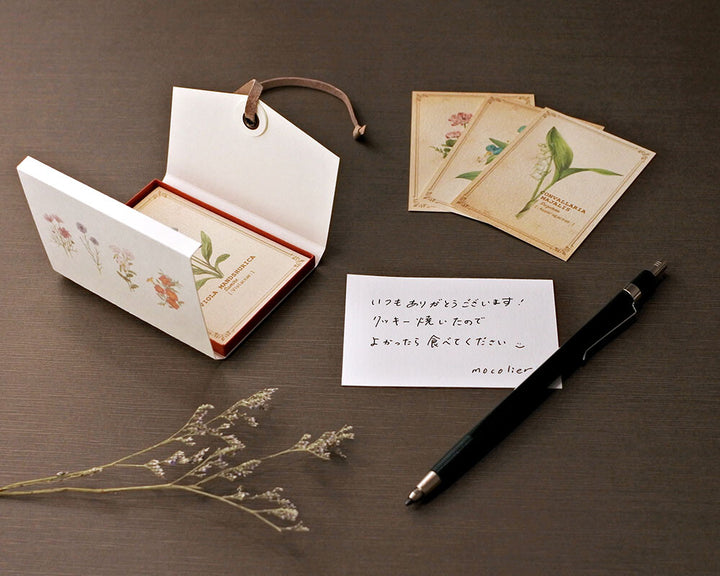 VIOLA MANDSHURICA
[Violaceae]
CONVALLARIA
MAJALIS
いつもありがとうございます！
クッキー焼いたので
よかったら食べてください
mocolier